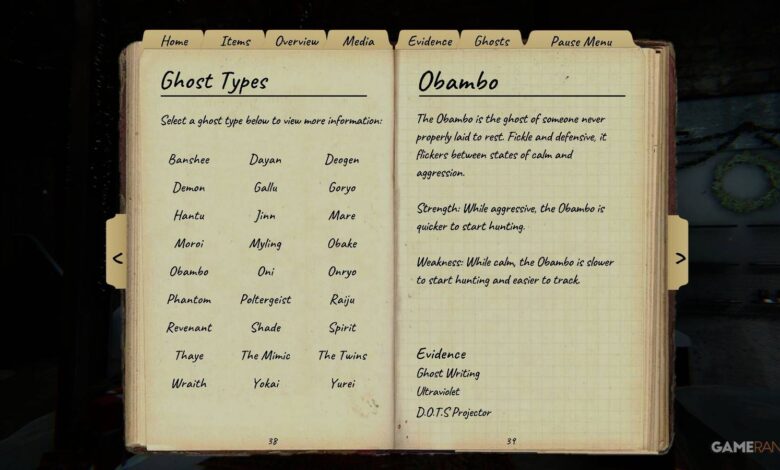 Home Items Overview Media Evidence Ghosts Pause Menu
Ghost Types
Select a ghost type below to view more information:
Banshee Dayan Deogen
Demon Gallu Goryo
Hantu Jinn Mare
Moroi Myling Obake
Obambo Oni Onryo
Phantom Poltergeist Raiju
Revenant Shade Spirit
Thaye The Mimic The Twins
Wraith Yokai Yurei
38
<
Obambo
The Obambo is the ghost of someone never
properly laid to rest. Fickle and defensive, it
flickers between states of calm and
aggression.
Strength: While aggressive, the Obambo is
quicker to start hunting.
Weakness: While calm, the Obambo is slower
to start hunting and easier to track.
Evidence
Ghost Writing
Ultraviolet
D.O.T.S Projector
39
>
GAMERAN